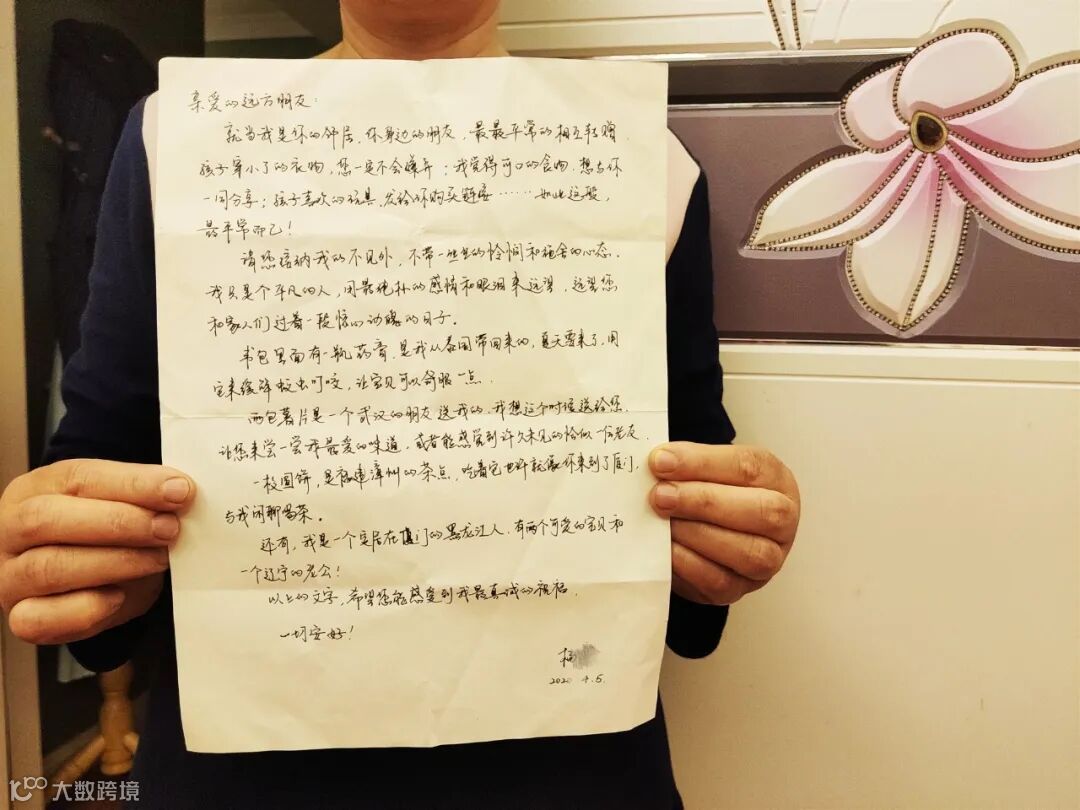 亲爱的远方朋友:
就当我是你的邻居,你身边的朋友,最最平常的相互转赠
孩子穿小了的衣物,您一定不会嫌弃;我觉得可口的食物,想与你
一同分享;孩子喜欢的玩具,发给你购买链接……如此这般,
最平常而已!
请您接纳我的不见外,不带一丝的怜悯和施舍的心态。
我只是个平凡的人,用最纯朴的感情和眼泪来远望,远望您
和家人们过着一段惊心动魄的日子。
书包里面有一瓶药膏,是我从泰国带回来的,夏天要来了,用
它来缓解蚊虫叮咬,让宝贝可以舒服一点。
两包薯片是一个武汉的朋友送我的,我想这个时候送给您,
让您来尝一尝我最爱的味道,或者能感觉到许久未见的恰似一位老友。
一枚圆饼,是福建漳州的茶点,吃着它也许就像你来到了厦门,
与我闲聊喝茶。
还有,我是一个定居在厦门的黑龙江人,有两个可爱的宝贝和
一个辽宁的老公!
以上的文字,希望您能感受到我最真诚的祝福。
一切安好!
杨
2020 4.5.
大数跨境